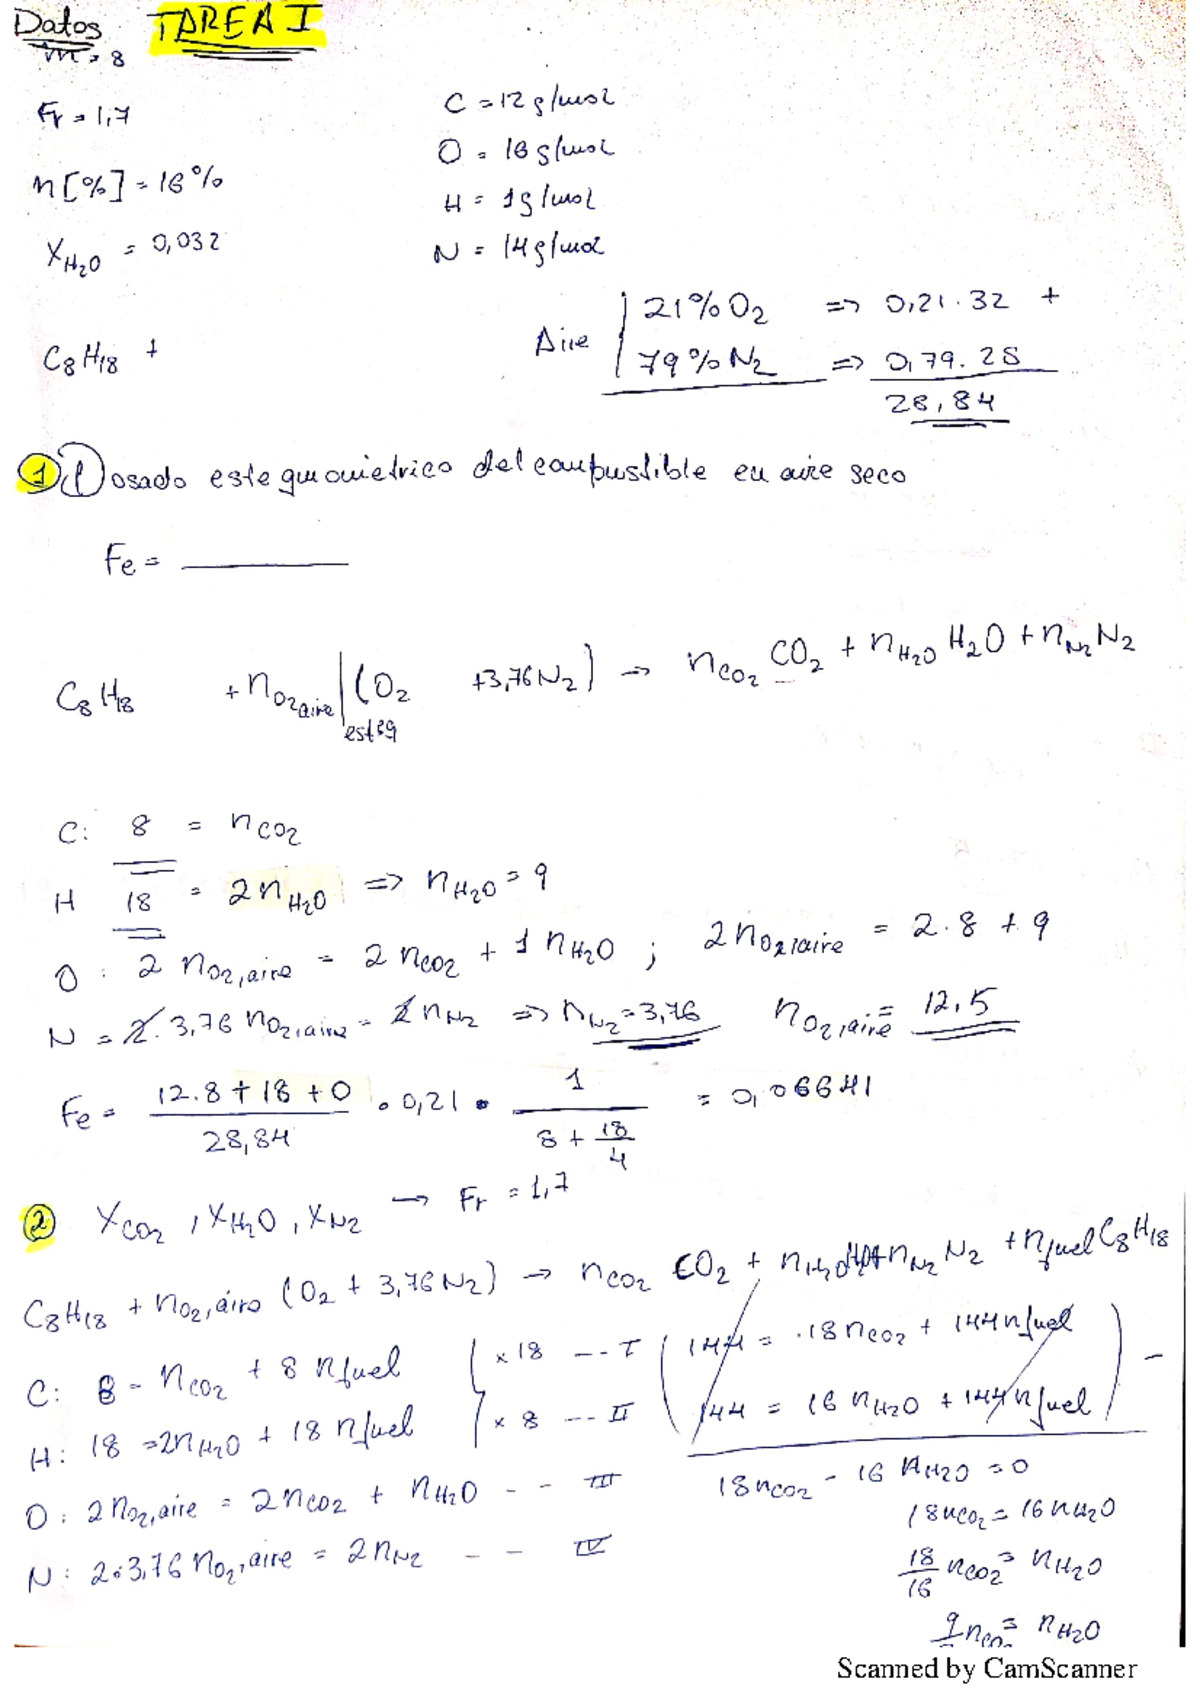 Datos TAREA I
m = 8
Fr = 1,7
n[%] = 16%
X_H2O = 0,032
C = 12 g/mol
O = 16 g/mol
H = 1 g/mol
N = 14 g/mol
C8 H18 +
Aire | 21% O2 => 0,21 . 32 +
79% N2 => 0,79 . 28
28,84
1) Dosado estequiometrico del combustible en aire seco
Fe =
C8 H18 + n_O2aire | esteq (O2 + 3,76 N2) → n_CO2 CO2 + n_H2O H2O + n_N2 N2
C: 8 = n_CO2
H 18 = 2 n_H2O => n_H2O = 9
O: 2 n_O2,aire = 2 n_CO2 + 1 n_H2O ; 2 n_O2,aire = 2.8 + 9
N = 2. 3,76 n_O2,aire = 2 n_N2 => n_N2 = 3,76 n_O2,aire = 12,5
Fe = (12.8 + 18 + 0)/28,84 . 0,21 . 1/(8 + 18/4) = 0,06641
2 X_CO2 , X_H2O , X_N2 → Fr = 1,7
C8H18 + n_O2,aire (O2 + 3,76 N2) → n_CO2 CO2 + n_H2O H2O + n_N2 N2 + n_fuel C8H18
C: 8 = n_CO2 + 8 n_fuel { x 18 --- I ( 144 = 18 n_CO2 + 144 n_fuel
H: 18 = 2 n_H2O + 18 n_fuel x 8 --- II 144 = 16 n_H2O + 144 n_fuel ) -
O: 2 n_O2,aire = 2 n_CO2 + n_H2O -- III
18 n_CO2 - 16 n_H2O = 0
N: 2.3,76 n_O2,aire = 2 n_N2 -- IV
18 n_CO2 = 16 n_H2O
18/16 n_CO2 = n_H2O
9 n_CO = n_H2O
Scanned by CamScanner